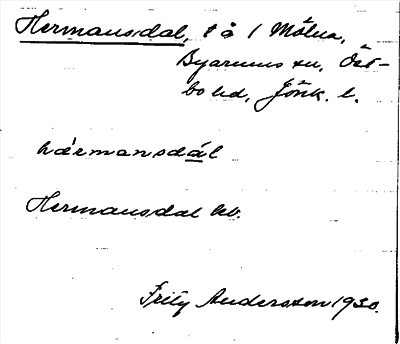 Hermansdal, t å 1 Mölna,
Byarums sn, Öst-
bo hd, Jönk. l.
hærmansdál
Hermansdal kb.
Fritz Andersson 1930.